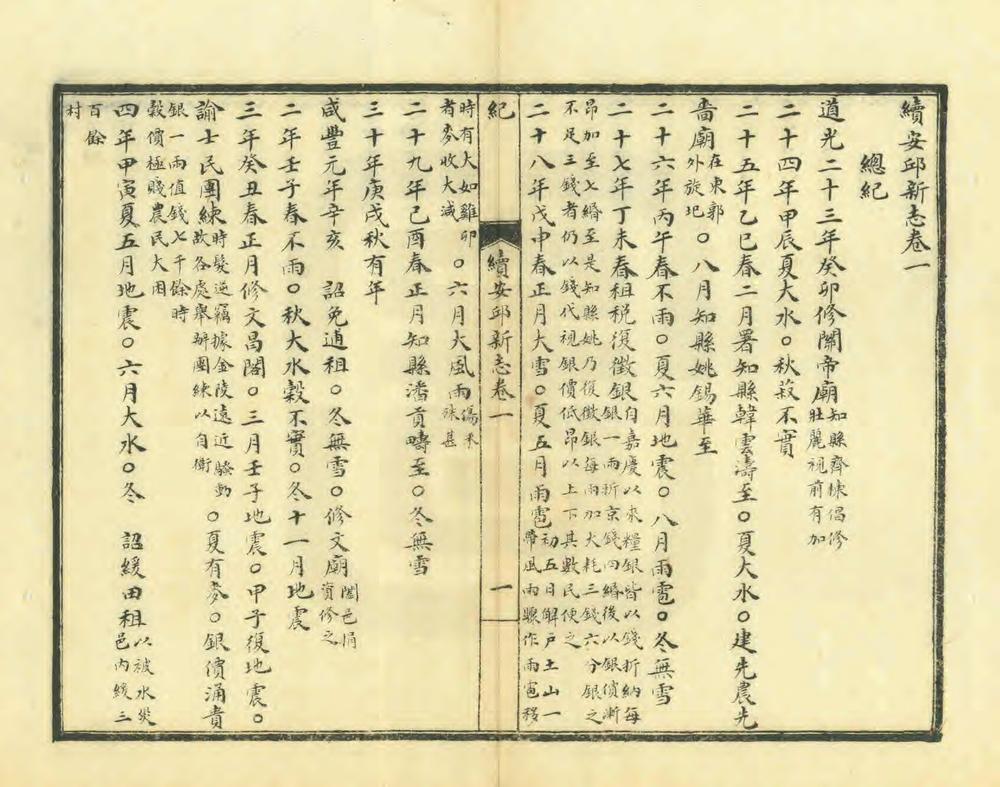 續安邱新志卷一
總紀
道光二十三年癸卯修關帝廟知縣齊倡修壯麗視前有加
二十四年甲辰夏大水○秋菽不實
二十五年乙巳春二月署知縣韓雲濤至○夏大水○建先農先
嗇廟在東郭外旗圯○八月知縣姚錫華至
二十六年丙午春不雨○夏六月地震○八月雨雹○冬無雪
二十七年丁未春租稅復徵銀自嘉慶以來糧銀皆以錢折納每銀一兩折京錢四緡後以銀價漸
昂加至七緡至是知縣姚乃復徵銀每兩加大耗三錢六分銀之不足三錢者仍以錢代視銀價低昂以上下其數民便之
二十八年戊申春正月大雪○夏五月雨雹初五日解戶土山一帶風雨驟作雨雹移
紀
續安邱新志卷一
一
時有大如雞卵者麥收大減○六月大風雨傷禾殊甚
二十九年己酉春正月知縣潘貢疇至○冬無雪
三十年庚戌秋有年
咸豐元年辛亥 詔免逋租○冬無雪○修文廟闔邑捐資修之
二年壬子春不雨○秋大水穀不實○冬十一月地震
三年癸丑春正月修文昌閣○三月壬子地震○甲子復地震○
諭士民團練時髮逆竊據金陵遠近騷動故各處舉辦團練以自衛○夏有麥○銀價涌貴
銀一兩值錢七千餘時穀價極賤農民大困
四年甲寅夏五月地震○六月大水○冬 詔緩田租以被水災邑內緩三
百餘村